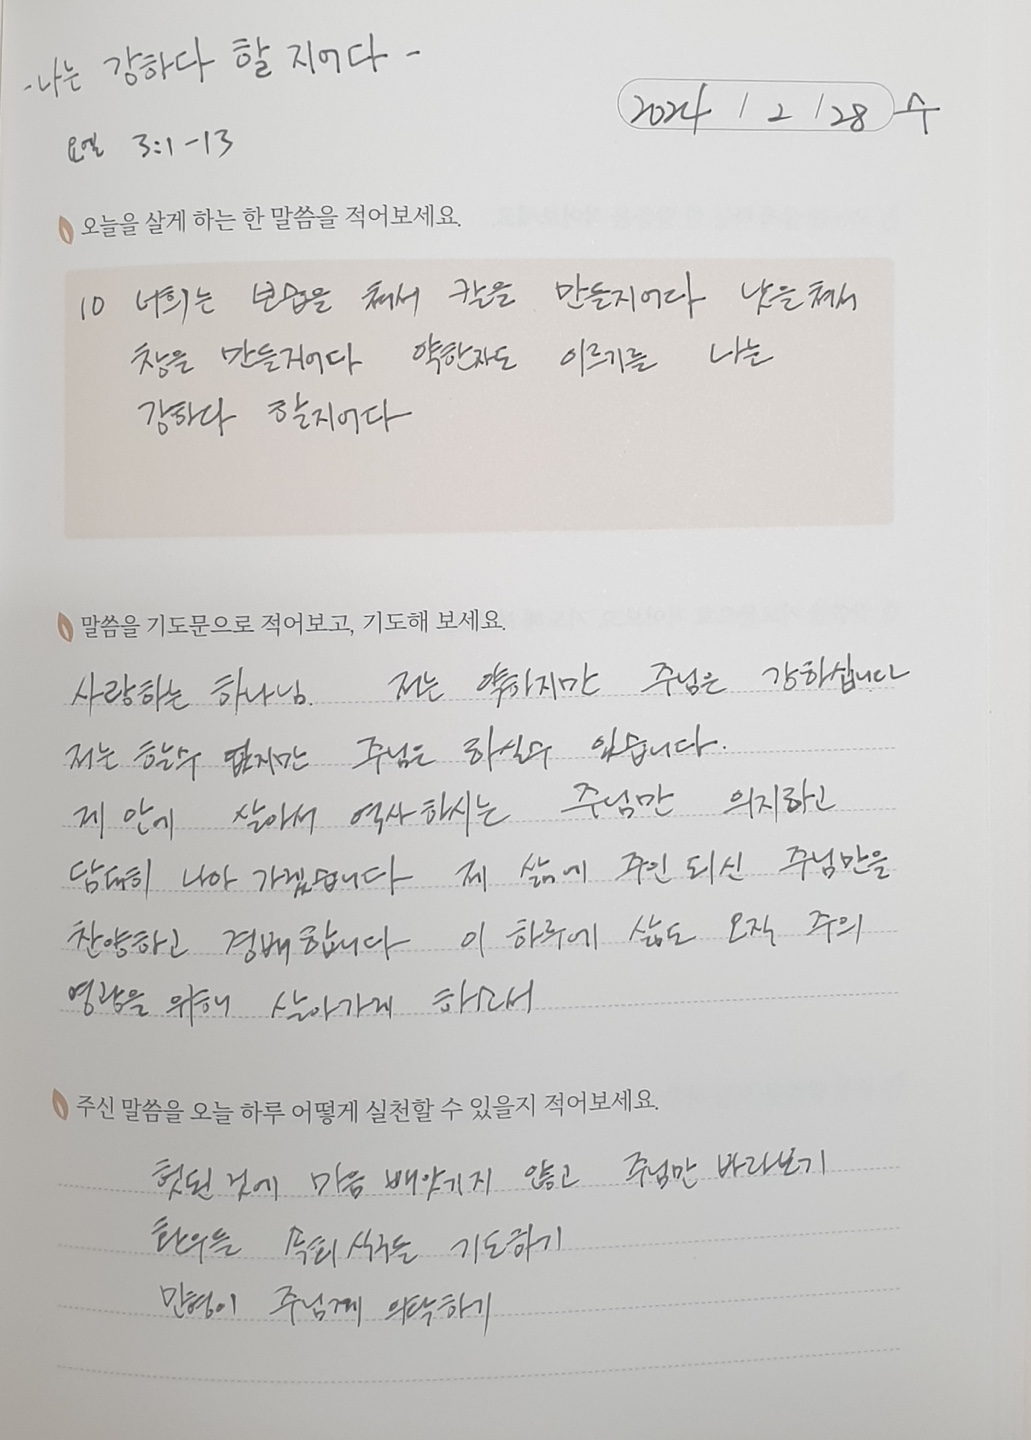 -나는 강하다 할 지어다-
2024 / 2 / 28 수
요엘 3:1-13
오늘을 살게 하는 한 말씀을 적어보세요.
10 너희는 보습을 쳐서 칼을 만들지어다 낫을 쳐서
창을 만들지어다 약한자도 이르기를 나는
강하다 할지어다
말씀을 기도문으로 적어보고, 기도해 보세요.
사랑하는 하나님. 저는 약하지만 주님은 강하십니다
저는 할수 없지만 주님은 하실수 있습니다.
제 안에 살아서 역사하시는 주님만 의지하고
담대히 나아 가겠습니다 제 삶에 주인 되신 주님만을
찬양하고 경배합니다 이 하루에 삶도 오직 주의
영광을 위해 살아가게 하소서
주신 말씀을 오늘 하루 어떻게 실천할 수 있을지 적어보세요.
헛된 것에 마음 빼앗기지 않고 주님만 바라보기
환우들 속회 식구들 기도하기
민형이 주님께 의탁하기